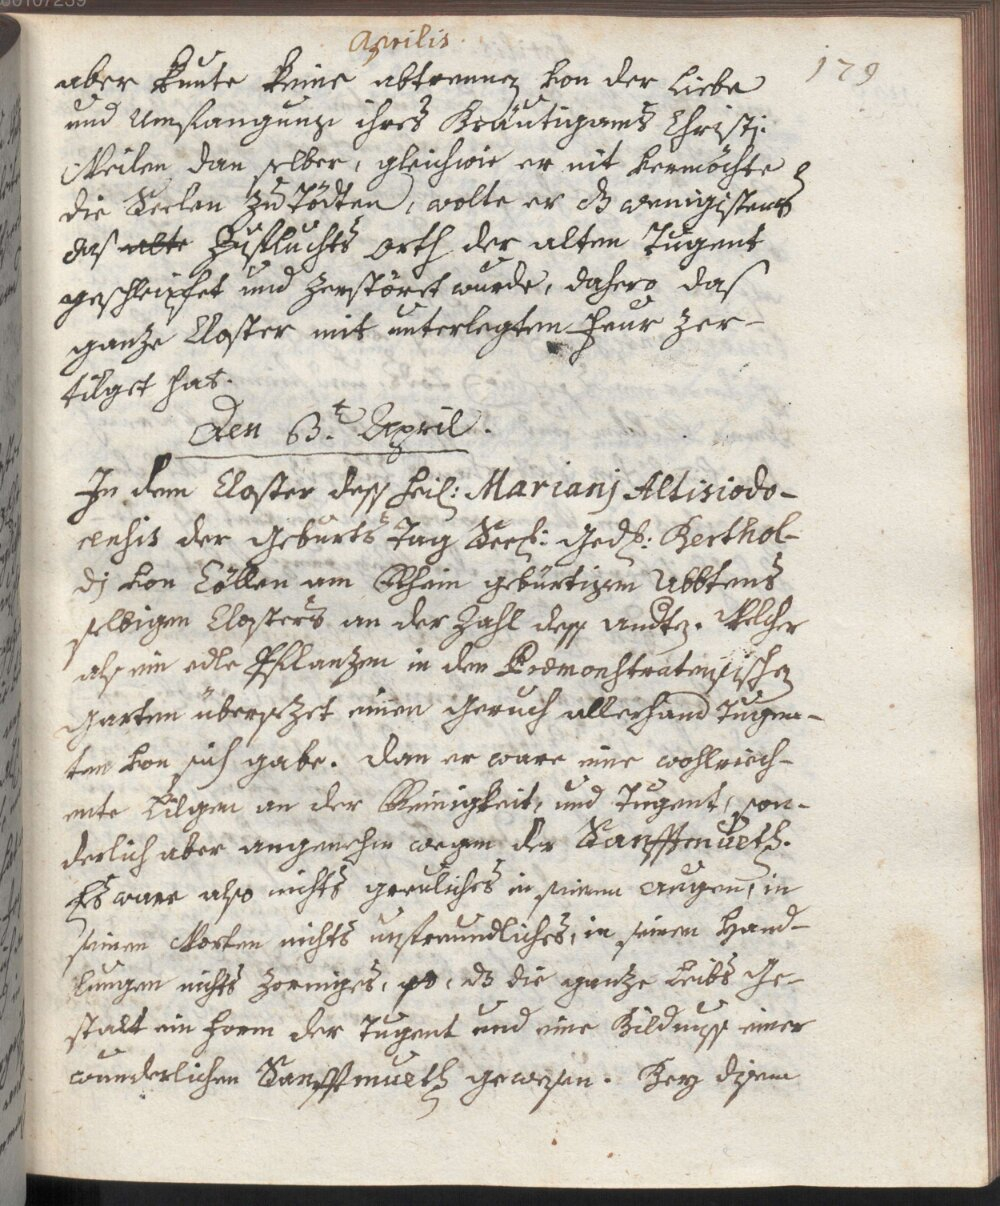 00107259
Aprilis.
179
aber kunte keine abtrennen von der Liebe
und Umfangung ihres Bräutigams Christi.
Weilen dan selber, gleichwie er nit vermöchte
die Seelen zu Tödten, wolte er dz wenigistens
das alte Zuefluchts orth der alten Tugent
geschleipfet und zerstöret wurde, dahero das
gantze Closter mit unterlegtem Feur zer-
tilget hat.
Den 6t. April.
In dem Closter dess heil: Marianj Altisiodo-
rensis der Geburts Tag Seel: Ged: Berthol-
dj von Cöllen am Rhein gebürtigen Abbtens
selbigen Closters an der Zahl dess andten. Welcher
als ein edle Pflanzen in den Præmonstratensischen
Garten übersezet einen Geruch allerhand Tugen-
ten von sich gabe. Dan er ware eine wohlriech-
ente Lilgen an der Reinigkeit, und Tugent, son-
derlich aber angenehm wegen der Sanfftmueth.
Es ware also nichts greuliches in seinen augen, in
seinen Worten nichts unfreundliches, in seinen Hand-
lungen nichts zorniges, so, dz die ganze Leibs Ge-
stalt ein form der Tugent und eine Bildnuss einer
wunderlichen Sanfftmueth gewesen. Bey disem